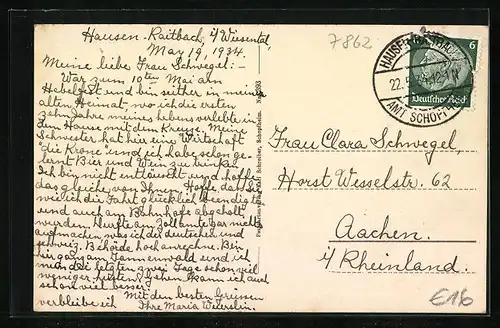 Hausen-Raitbach, i/Wiesental,
May 19, 1934.
Meine liebe Frau Schwegel:-
War zum 10ten Mai am
Hebelfest und bin seither in meiner
alten Heimat, wo ich die ersten
zehn Jahre meines lebens verlebte in
dem Hause mit dem Kreuze. Meine
Schwester hat hier eine Wirtschaft
"die Krone" und ich habe schon ge-
lernt Bier und Wein zu trinken.
Ich bin nicht enttäuscht und hoffe
das gleiche von Ihnen. Hoffe daß Sie
wie ich die Fahrt glücklich beendigt
und auch am Bahnhofe abgeholt
wurden. Mußte am Zollamte gar nichts
aufmachen, was ich die deutschen und
schweiz. Behörde hoch anrechne. Bin
hier ganz am Tannenwald und ich
die letzten zwei Tage schon viel
weniger husten. Gehen kann ich auch
schon viel besser.
Mit den besten Grüssen
verbleibe ich Ihre Maria
7862
6
Deutsches Reich
HAUSEN-RAITBACH
AMT SCHOPFH
Frau Clara Schwegel,
Horst Wesselstr. 62
Aachen
i/Rheinland.
€16